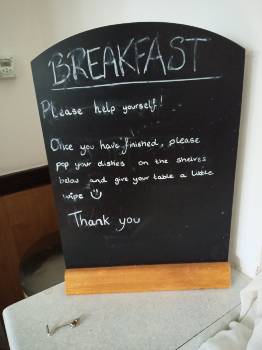 BREAKFAST
Please help yourself!
Once you have finished, please
pop your dishes on the shelves
below and give your table a little
wipe
Thank you